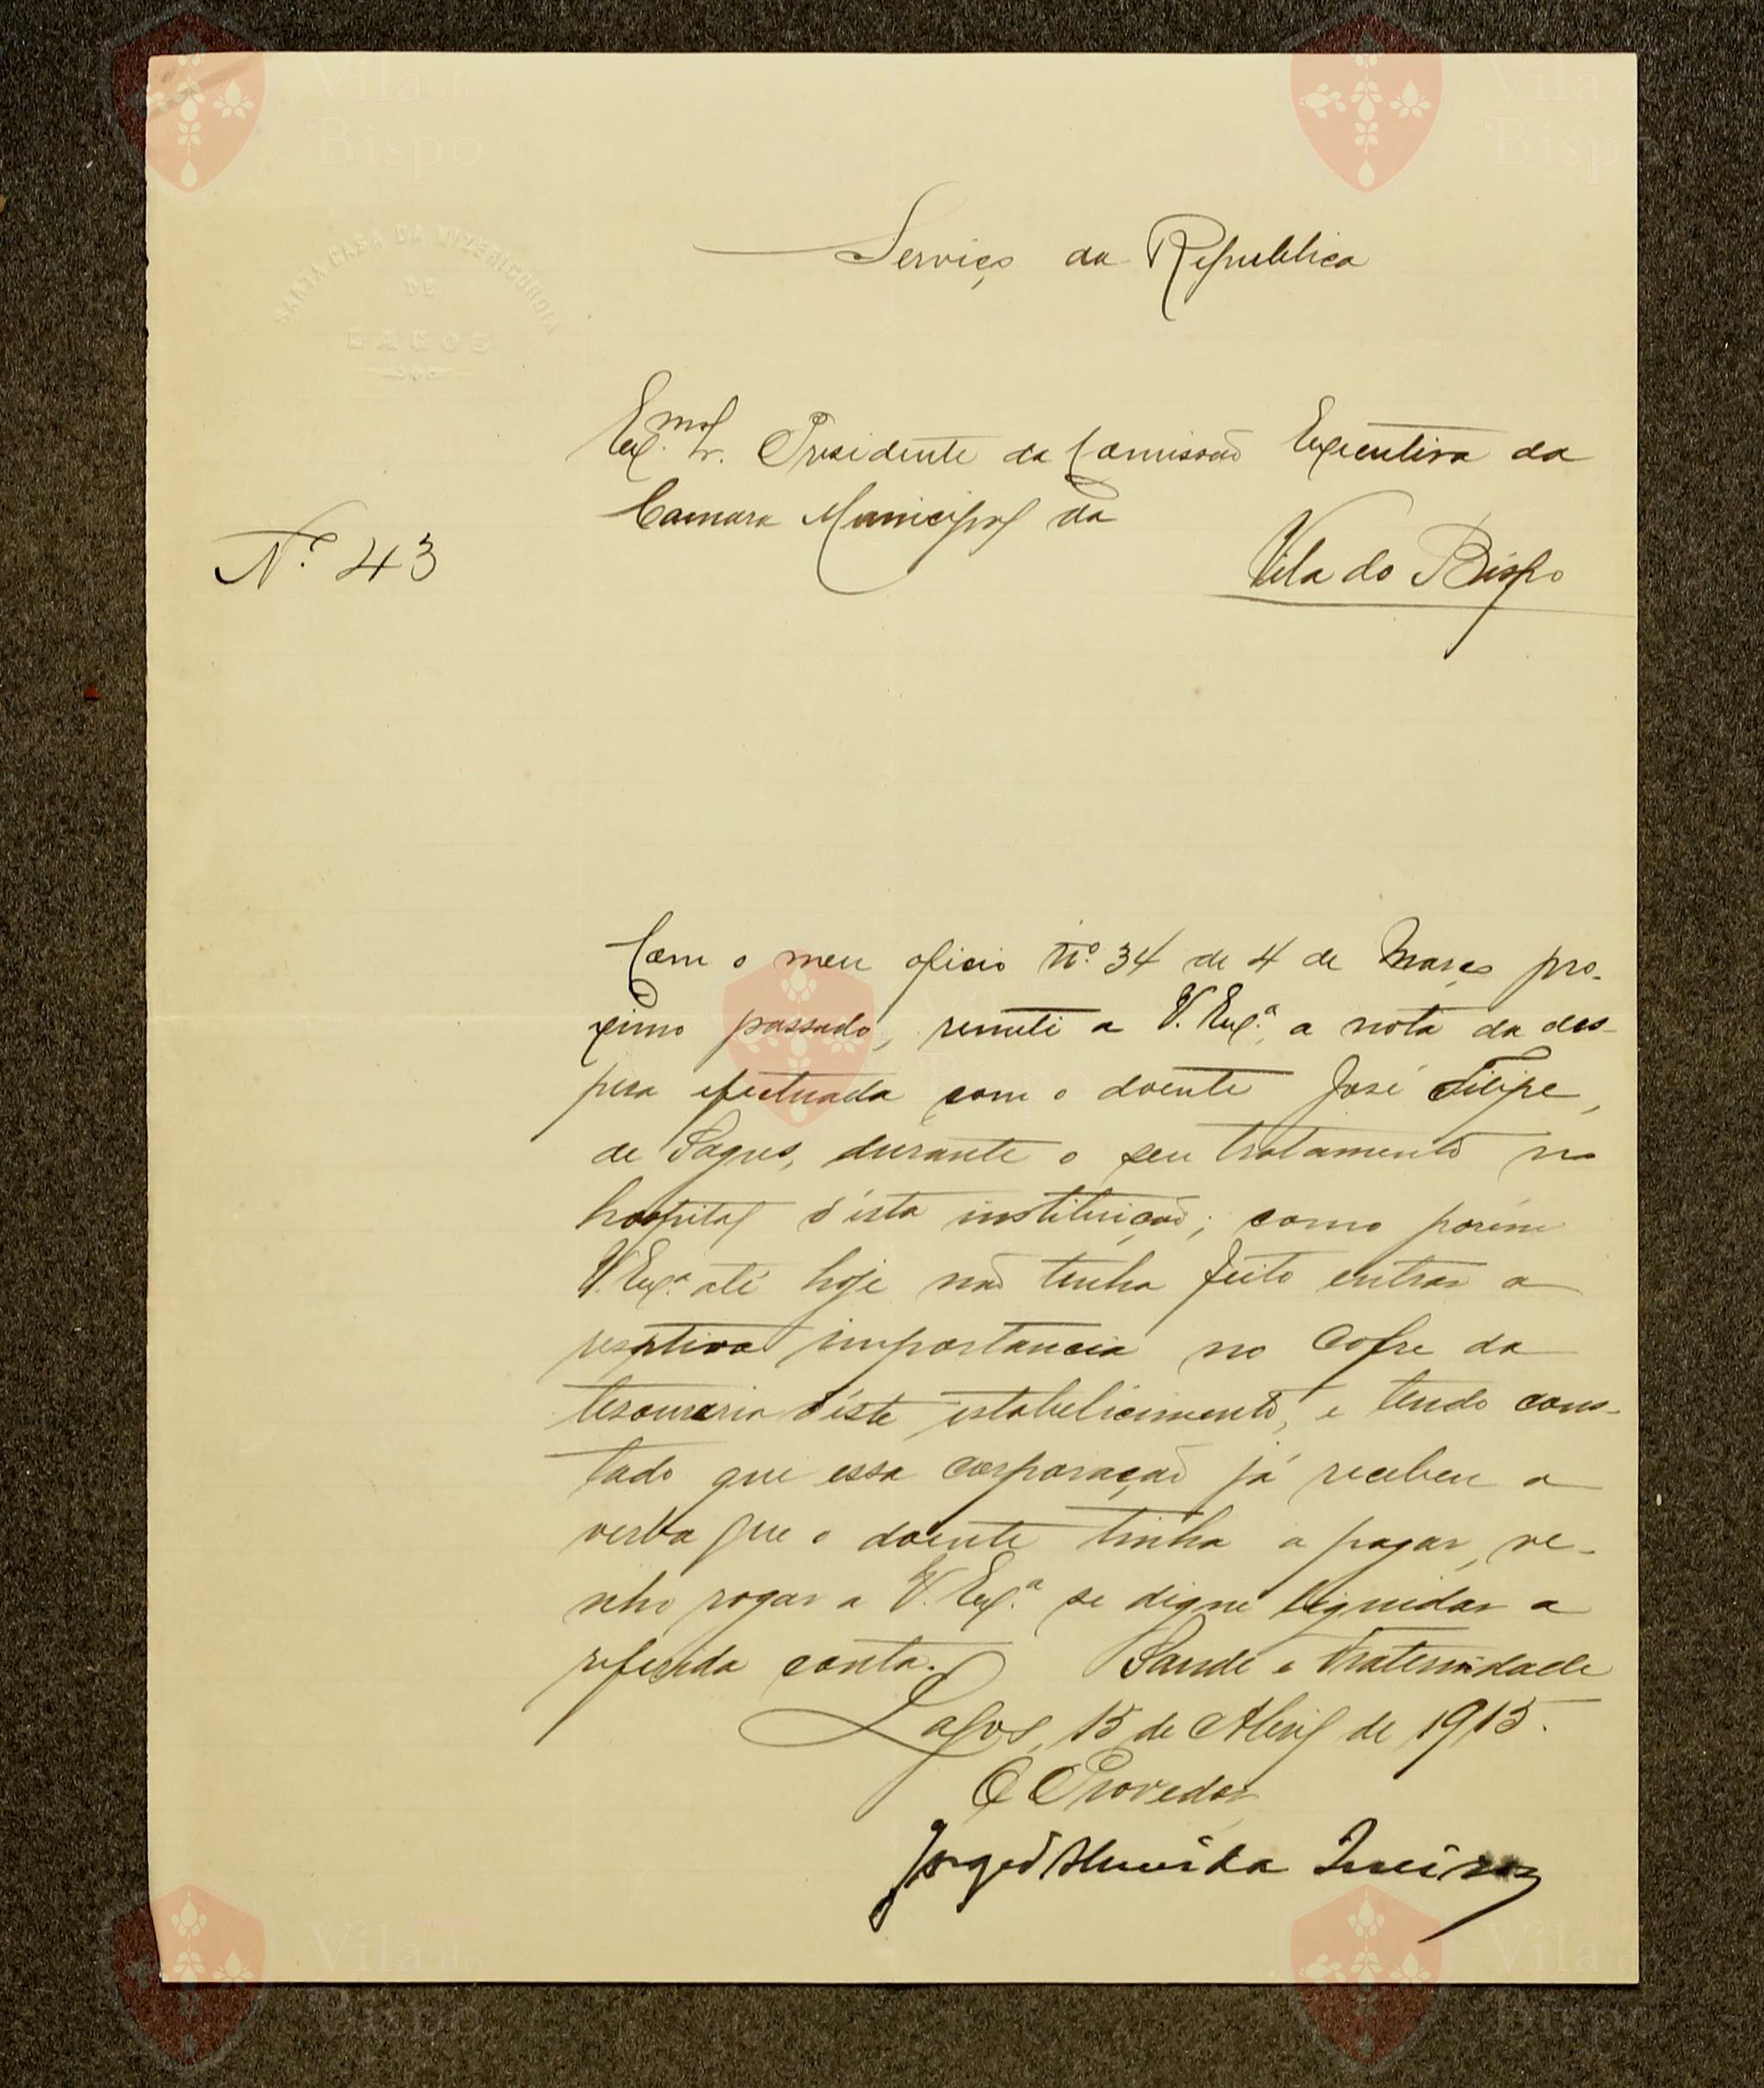 SANTA CASA DA MIZERICORDIA
DE
LAGOS
Serviço da Republica
Exmo Sr. Presidente da Comissão Executiva da
Camara Municipal da
Nº 43
Vila do Bispo
Com o meu oficio nº 34 de 4 de Março pro-
ximo passado, remeti a V. Exª, a nota da des-
peza efectuada com o doente José Filipe,
de Sagres, durante o seu tratamento no
hospital d'esta instituição; como porém
V. Exª até hoje não tenha feito entrar a
respetiva importancia no Cofre da
tesouraria d'éste estabelicimento, e tendo cons-
tado que essa corporação já recebeu a
verba que o doente tinha a pagar, ve-
nho rogar a V. Exª se digne liquidar a
referida conta. Saude e Fraternidade
Lagos, 15 de Abril de 1915.
O Provedor
Jorge d'Almeida
Vila do
Bispo